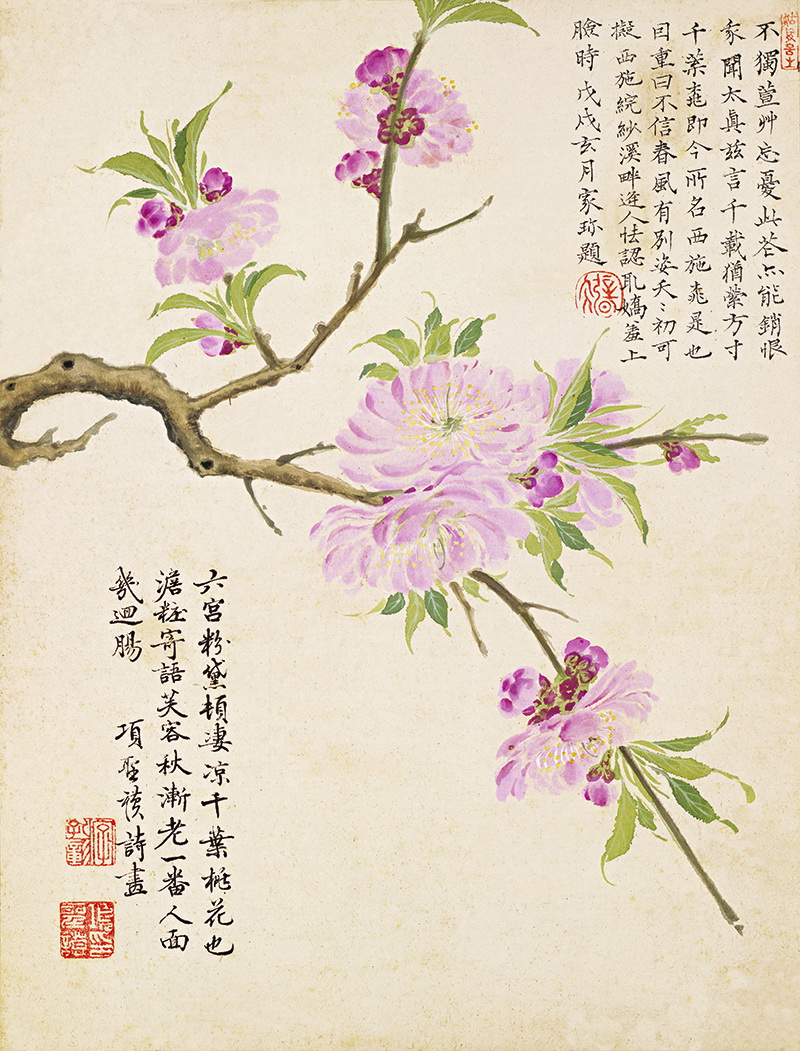 不獨萱艸忘憂此花亦能銷恨
聞太真茲言千載猶縈方寸
千葉桃即今所名西施桃是也
曰重曰不信春風有別姿夭〻初可
擬西施浣紗溪畔逢人怯認取嬌羞上
臉時 戊戌玄月家珍題
六宮粉黛頓凄凉千葉桃花也
澹粧寄語芙容秋漸老一番人面
幾迴腸
項聖謨詩畫